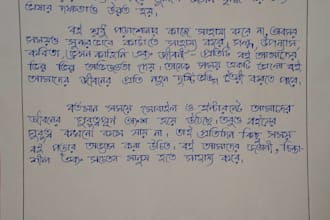 ভাষার দক্ষতাও উন্নত হয়।
বই শুধু পড়াশোনার কাজে সাহায্য করে না, অবসর
সময়ও সুন্দরভাবে কাটাতে সাহায্য করে। গল্প, উপন্যাস,
কবিতা, ভ্রমণ কাহিনি এবং জীবনী প্রতিটি বই আমাদের
ভিন্ন ভিন্ন অভিজ্ঞতা দেয়। অনেক সময় একটি ভালো বই
আমাদের জীবনের প্রতি নতুন দৃষ্টিভঙ্গি তৈরি করতে পারে।
বর্তমান সময়ে মোবাইল ও ইন্টারনেট আমাদের
জীবনের গুরুত্বপূর্ণ অংশ হয়ে উঠেছে, তবুও বইয়ের
গুরুত্ব কখনো কমে যায় না। তাই প্রতিদিন কিছু সময়
বই পড়ার অভ্যাস করা উচিত। বই আমাদের জ্ঞানী, চিন্তা-
শীল এবং সচেতন মানুষ হতে সাহায্য করে।